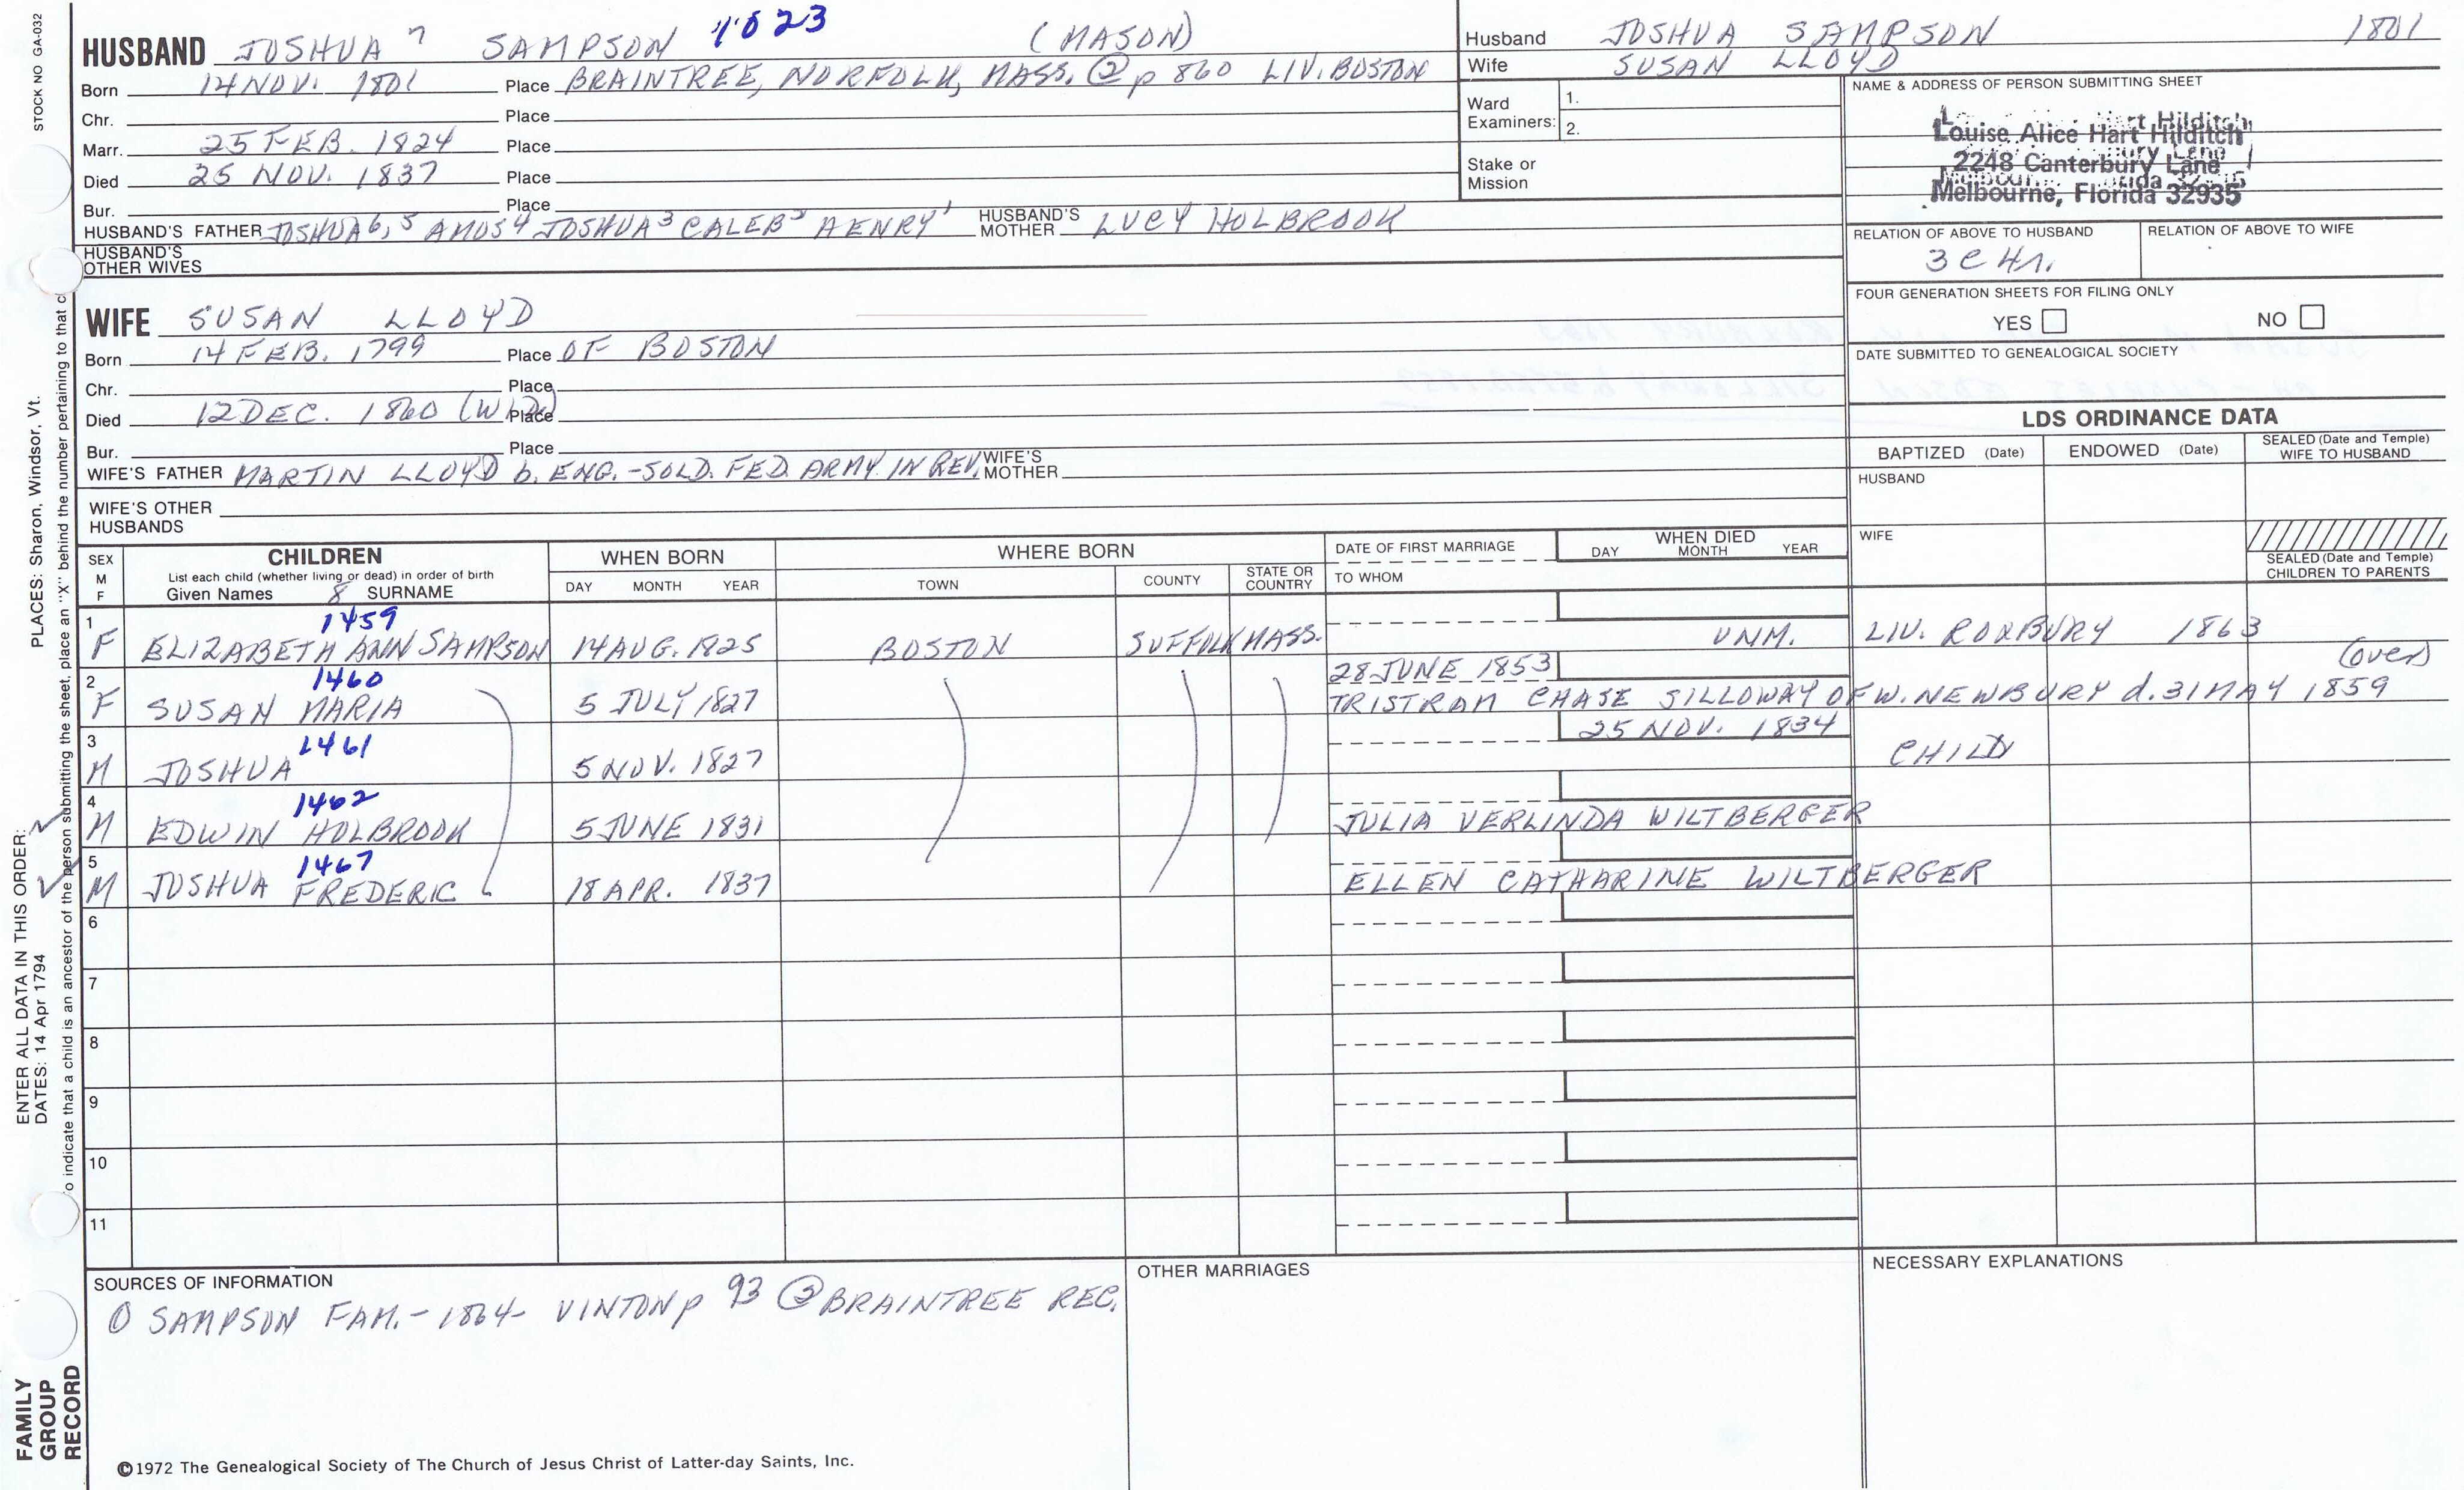 STOCK NO GA-032
HUSBAND JOSHUA 7 SAMPSON 1023 (MASON)
Born 14 NOV. 1801 Place BRAINTREE, NORFOLK, MASS. ② p 860 LIV. BOSTON
Chr. Place
Marr. 25 FEB. 1824 Place
Died 25 NOV. 1837 Place
Bur. Place
HUSBAND'S FATHER JOSHUA 6, 5 AMOS 4 JOSHUA 3 CALEB 2 HENRY 1 HUSBAND'S MOTHER LUCY HOLBROOK
HUSBAND'S OTHER WIVES
Husband JOSHUA SAMPSON 1801
Wife SUSAN LLOYD
Ward Examiners: 1.
2.
Stake or Mission
NAME & ADDRESS OF PERSON SUBMITTING SHEET
Louise Alice Hart Hilditch
2248 Canterbury Lane
Melbourne, Florida 32935
RELATION OF ABOVE TO HUSBAND RELATION OF ABOVE TO WIFE
3 C 4 r.
FOUR GENERATION SHEETS FOR FILING ONLY
YES NO
DATE SUBMITTED TO GENEALOGICAL SOCIETY
WIFE SUSAN LLOYD
Born 14 FEB. 1799 Place OF BOSTON
Chr. Place
Died 12 DEC. 1860 Place
Bur. Place
WIFE'S FATHER MARTIN LLOYD b. ENG. - SOLD. FED. ARMY IN REV. WIFE'S MOTHER
WIFE'S OTHER HUSBANDS
LDS ORDINANCE DATA
BAPTIZED (Date) ENDOWED (Date) SEALED (Date and Temple) WIFE TO HUSBAND
HUSBAND
WIFE
SEALED (Date and Temple) CHILDREN TO PARENTS
SEX M F CHILDREN WHEN BORN WHERE BORN DATE OF FIRST MARRIAGE WHEN DIED
List each child (whether living or dead) in order of birth
Given Names 8 SURNAME DAY MONTH YEAR TOWN COUNTY STATE OR COUNTRY TO WHOM DAY MONTH YEAR
1 1459
F ELIZABETH ANN SAMPSON 14 AUG. 1825 BOSTON SUFFOLK MASS. UNM. LIV. ROXBURY 1863
(over)
2 1460 28 JUNE 1853
F SUSAN MARIA 5 JULY 1827 TRISTRAM CHASE SILLOWAY OF W. NEWBURY d. 31 MAY 1859
3 1461 25 NOV. 1834
M JOSHUA 5 NOV. 1827 CHILD
4 1462
M EDWIN HOLBROOK 5 JUNE 1831 JULIA VERLINDA WILTBERGER
5 1467
M JOSHUA FREDERIC 18 APR. 1837 ELLEN CATHARINE WILTBERGER
6
7
8
9
10
11
SOURCES OF INFORMATION OTHER MARRIAGES NECESSARY EXPLANATIONS
① SAMPSON FAM. - 1864 - VINTON p 93 ② BRAINTREE REC.
©1972 The Genealogical Society of The Church of Jesus Christ of Latter-day Saints, Inc.
FAMILY GROUP RECORD
ENTER ALL DATA IN THIS ORDER:
DATES: 14 Apr 1794 PLACES: Sharon, Windsor, Vt.
o indicate that a child is an ancestor of the person submitting the sheet, place an "X" behind the number pertaining to that c